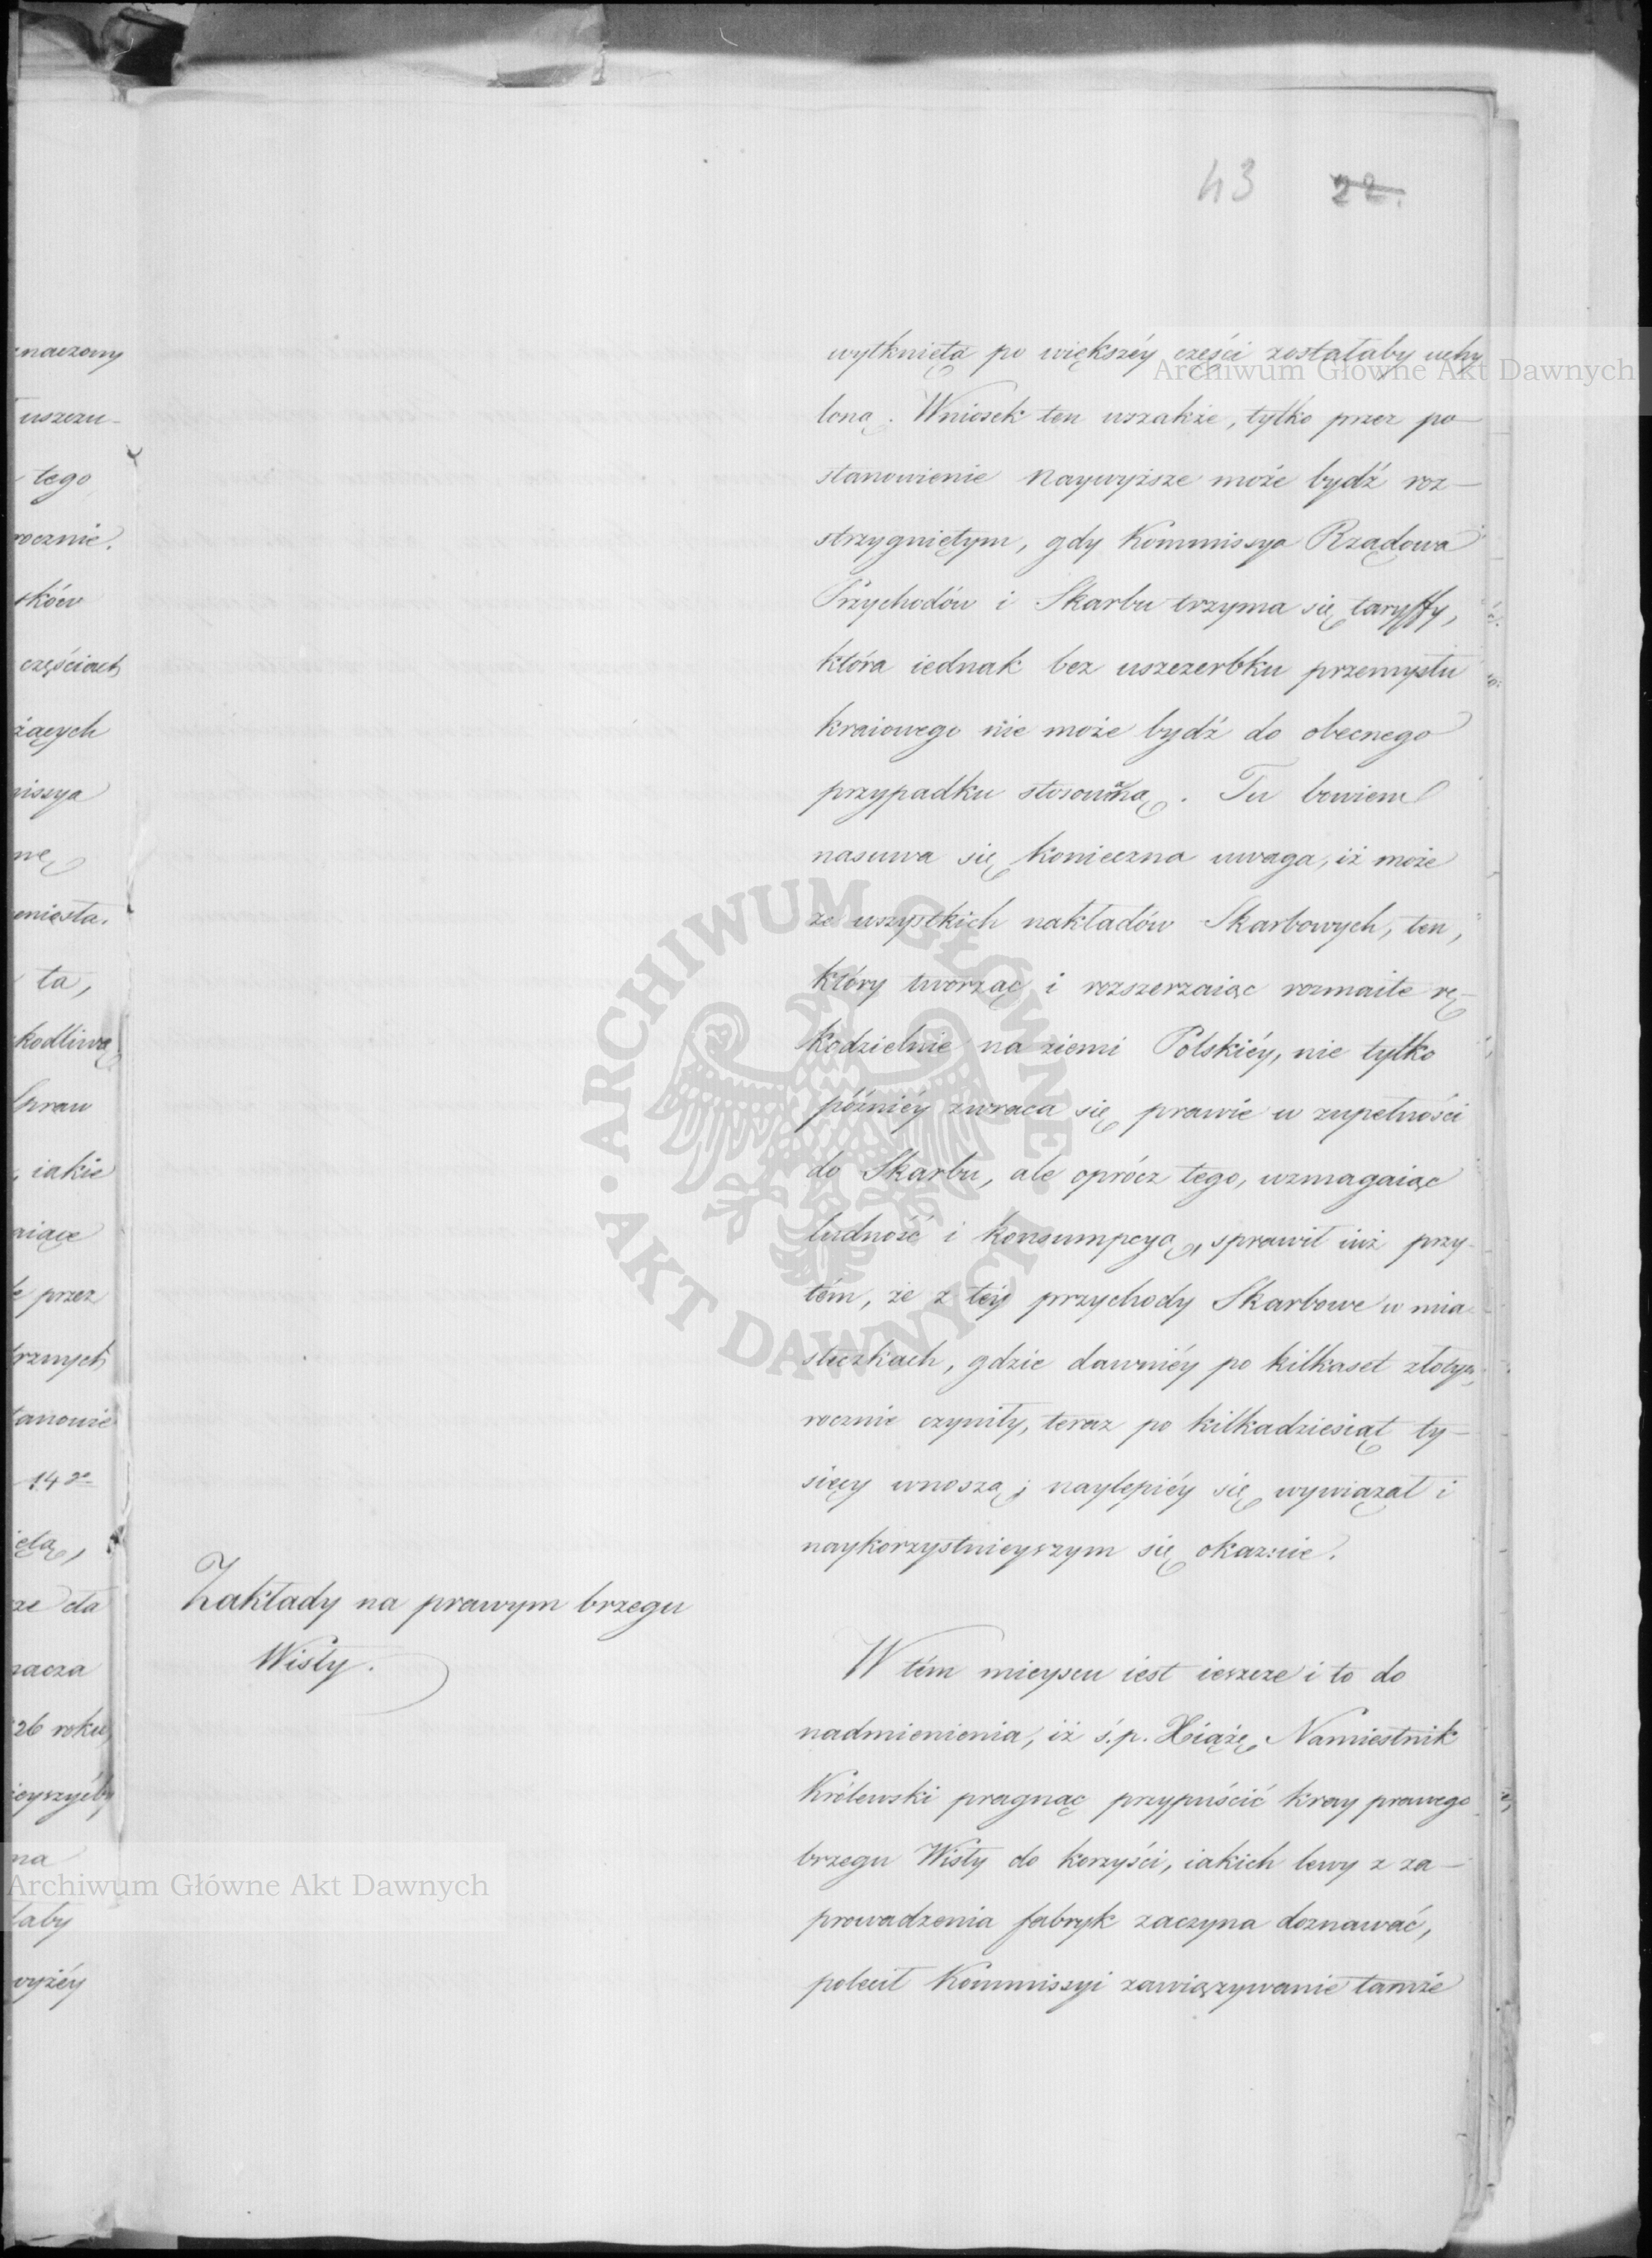 43 22.
wytknięta po większéy części zostałaby uchy
loną. Wniosek ten wszakże, tylko przez po-
stanowienie Naywyższe może bydź roz-
strzygniętym, gdy Kommissya Rządowa
Przychodów i Skarbu trzyma się taryffy,
która iednak bez uszczerbku przemysłu
kraiowego nie może bydź do obecnego
przypadku stosowną. Tu bowiem
nasuwa się konieczna uwaga, iż może
ze wszystkich nakładów Skarbowych, ten,
który tworząc i rozszerzaiąc rozmaite rę-
kodzielnie na ziemi Polskiéy, nie tylko
późniéy zwraca się prawie w zupełności
do Skarbu, ale oprócz tego, wzmagaiąc
ludność i konsumpcyą, sprawił iuż przy-
tém, że z téy przychody Skarbowe w mia
steczkach, gdzie dawniéy po kilkaset złotych
rocznie czyniły, teraz po kilkadziesiąt ty-
sięcy wnoszą; naylepiéy się wywiązał i
naykorzystnieyszym się okazuie.
Zakłady na prawym brzegu
Wisły.
W tém mieyscu iest ieszcze i to do
nadmienienia, iż ś.p. Xiążę Namiestnik
Królewski pragnąc przypuścić kray prawego
brzegu Wisły do korzyści, iakich lewy z za-
prowadzenia fabryk zaczyna doznawać,
polecił Kommissyi zawiązywanie tamże
naczony
uszczu-
tego
rocznie.
sków
częściach
żących
missya
nę
eniosła.
ta,
kodliwą
Spraw
iakie
aiące
przez
trznych
tanowie
14 go
iętą,
że da
nacza
26 roku
ieyszych
na
łaby
wyżéy
Archiwum Główne Akt Dawnych
ARCHIWUM GŁÓWNE
AKT DAWNYCH
Archiwum Główne Akt Dawnych